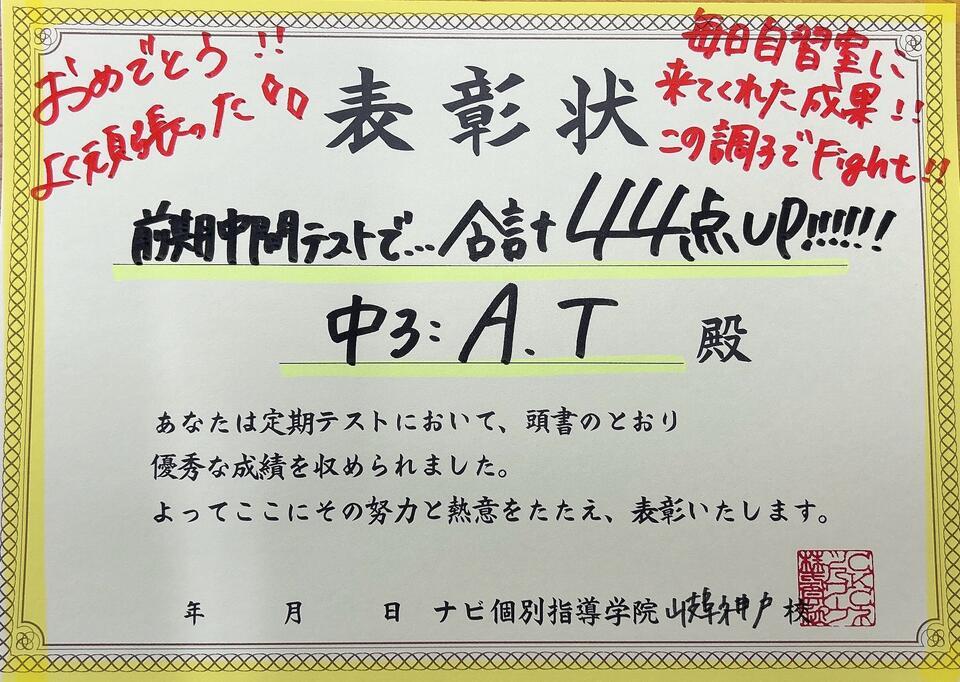 おめでとう!!
よく頑張った
毎日自習室に
来てくれた成果!!
この調子でFight!!
表彰状
前期中間テストで…合計44点UP!!!!!!
中3:A.T 殿
あなたは定期テストにおいて、頭書のとおり
優秀な成績を収められました。
よってここにその努力と熱意をたたえ、表彰いたします。
年 月 日 ナビ個別指導学院 岐阜神戸校